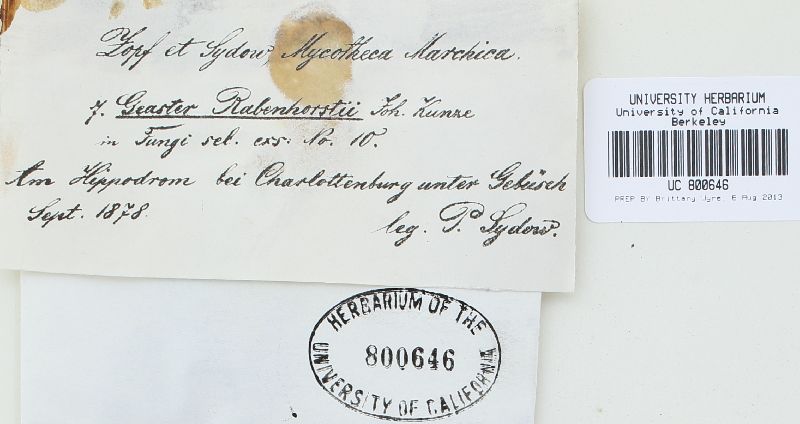 Zopf et Sydow, Mycotheca Marchica.
7. Geaster Rabenhorstii Joh. Kunze
in Fungi sel. exs: No. 10.
Am Hippodrom bei Charlottenburg unter Gebüsch
Sept. 1878.
leg. P. Sydow.
UNIVERSITY HERBARIUM
University of California
Berkeley
UC 800646
PREP BY Brittany Jyre, 6 Aug 2013
HERBARIUM OF THE
800646
UNIVERSITY OF CALIFORNIA